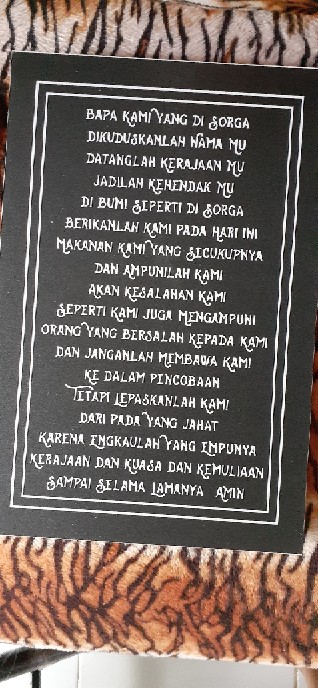 BAPA KAMI YANG DI SORGA
DIKUDUSKANLAH NAMA MU
DATANGLAH KERAJAAN MU
JADILAH KEHENDAK MU
DI BUMI SEPERTI DI SORGA
BERIKANLAH KAMI PADA HARI INI
MAKANAN KAMI YANG SECUKUPNYA
DAN AMPUNILAH KAMI
AKAN KESALAHAN KAMI
SEPERTI KAMI JUGA MENGAMPUNI
ORANG YANG BERSALAH KEPADA KAMI
DAN JANGANLAH MEMBAWA KAMI
KE DALAM PENCOBAAN
TETAPI LEPASKANLAH KAMI
DARI PADA YANG JAHAT
KARENA ENGKAULAH YANG EMPUNYA
KERAJAAN DAN KUASA DAN KEMULIAAN
SAMPAI SELAMA LAMANYA AMIN